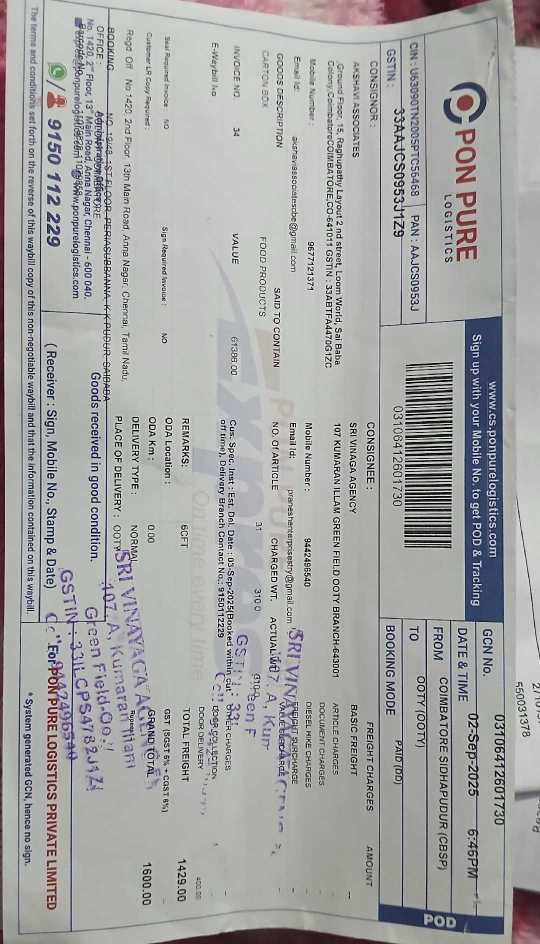 PON PURE
LOGISTICS
www.cs.ponpurelogistics.com
Sign up with your Mobile No. to get POD & Tracking
GCN No. 03106412601730
DATE & TIME 02-Sep-2025 6:46PM
FROM COIMBATORE SIDHAPUDUR (CBSP)
TO OOTY (OOTY)
BOOKING MODE PAID (DD)
POD
CIN : U63090TN2005PTC56468 PAN : AAJCS0953J
GSTIN : 33AAJCS0953J1Z9
03106412601730
CONSIGNOR :
AKSHAVI ASSOCIATES
Ground Floor, 15, Raghupathy Layout 2 nd street, Loom World, Sai Baba
Colony,CoimbatoreCOIMBATORE,CO-641011 GSTIN : 33ABTFA4470G1ZC
Mobile Number : 9677121371
Email Id: akshaviassociatescbe@gmail.com
CONSIGNEE :
SRI VINAGA AGENCY
107 KUMARAN ILLAM GREEN FIELD OOTY BRANCH-643001
Mobile Number : 9442496540
Email Id: praneshenterprisestry@gmail.com
FREIGHT CHARGES AMOUNT
BASIC FREIGHT
ARTICLE CHARGES
DOCUMENT CHARGES
DIESEL HIKE CHARGES
GOODS DESCRIPTION SAID TO CONTAIN NO. OF ARTICLE CHARGED WT. ACTUAL WT
CARTON BOX FOOD PRODUCTS 31 310.0
INVOICE NO 34 VALUE 61386.00
E-Waybill No
Cus. Spec. Inst : Est. Del. Date : 03-Sep-2025(Booked within cut
off time), Delivery Branch Contact No.: 9150112229
DOOR COLLECTION
DOOR DELIVERY 400.00
TOTAL FREIGHT 1429.00
GST (SGST 6% + CGST 6%)
GRAND TOTAL 1600.00
REMARKS: 6CFT
Seal Required Invoice NO Sign Required Invoice : NO
ODA Location :
Customer LR Copy Required :
ODA Km : 0.00
DELIVERY TYPE : NORMAL
PLACE OF DELIVERY : OOTY
Regd. Off No 1420, 2nd Floor, 13th Main Road, Anna Nagar, Chennai, Tamil Nadu,
BOOKING
OFFICE :
No. 1420, 2nd Floor, 13th Main Road, Anna Nagar, Chennai - 600 040.
www.ponpurelogistics.com
9150 112 229
Goods received in good condition.
( Receiver : Sign, Mobile No., Stamp & Date)
SRI VINAYAGA
107, A, Kumaran Illam
Green Field, Oo
GSTIN : 33ILCPS4782J1Z1
9442496540
For PON PURE LOGISTICS PRIVATE LIMITED
The terms and conditions set forth on the reverse of this waybill copy of this non-negotiable waybill and that the information contained on this waybill.
* System generated GCN, hence no sign.
550031378